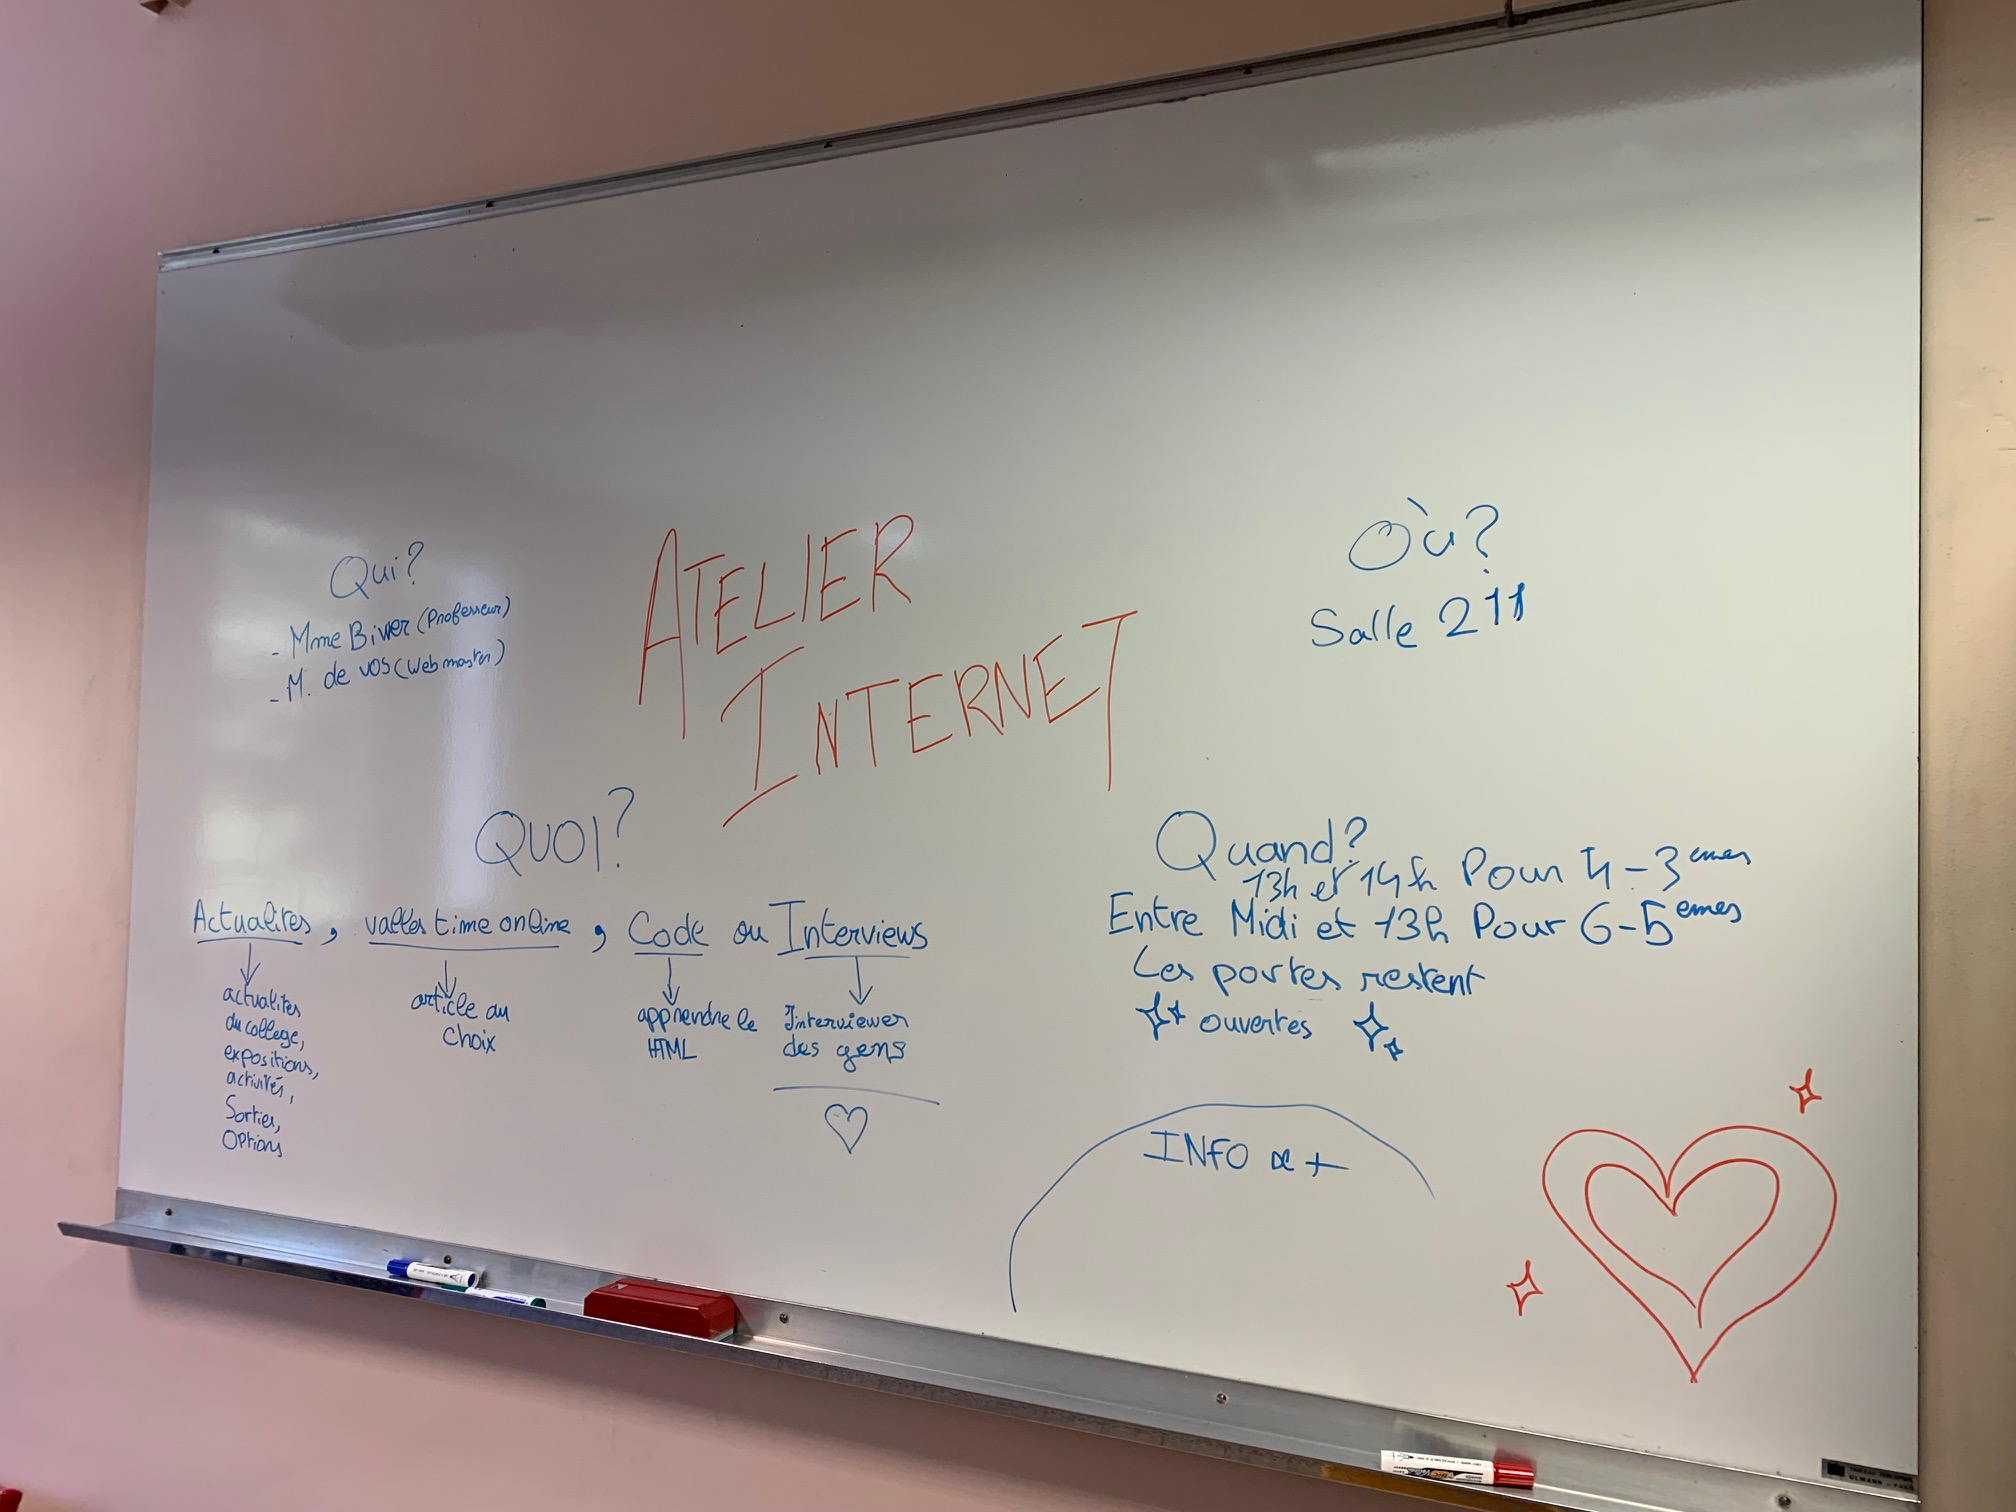 ATELIER
INTERNET
Qui?
- Mme Biver (Professeur)
- M. de vos (Webmaster)
Où?
Salle 211
QUOI?
Actualites, valles time online, Code ou Interviews
actualites
du college,
expositions,
activités,
Sorties,
Options
article au
choix
apprendre le
HTML
Interviewer
des gens
Quand?
13h et 14h Pour 4-3emes
Entre Midi et 13h Pour 6-5emes
Les portes restent
ouvertes
INFO +
ULMANN